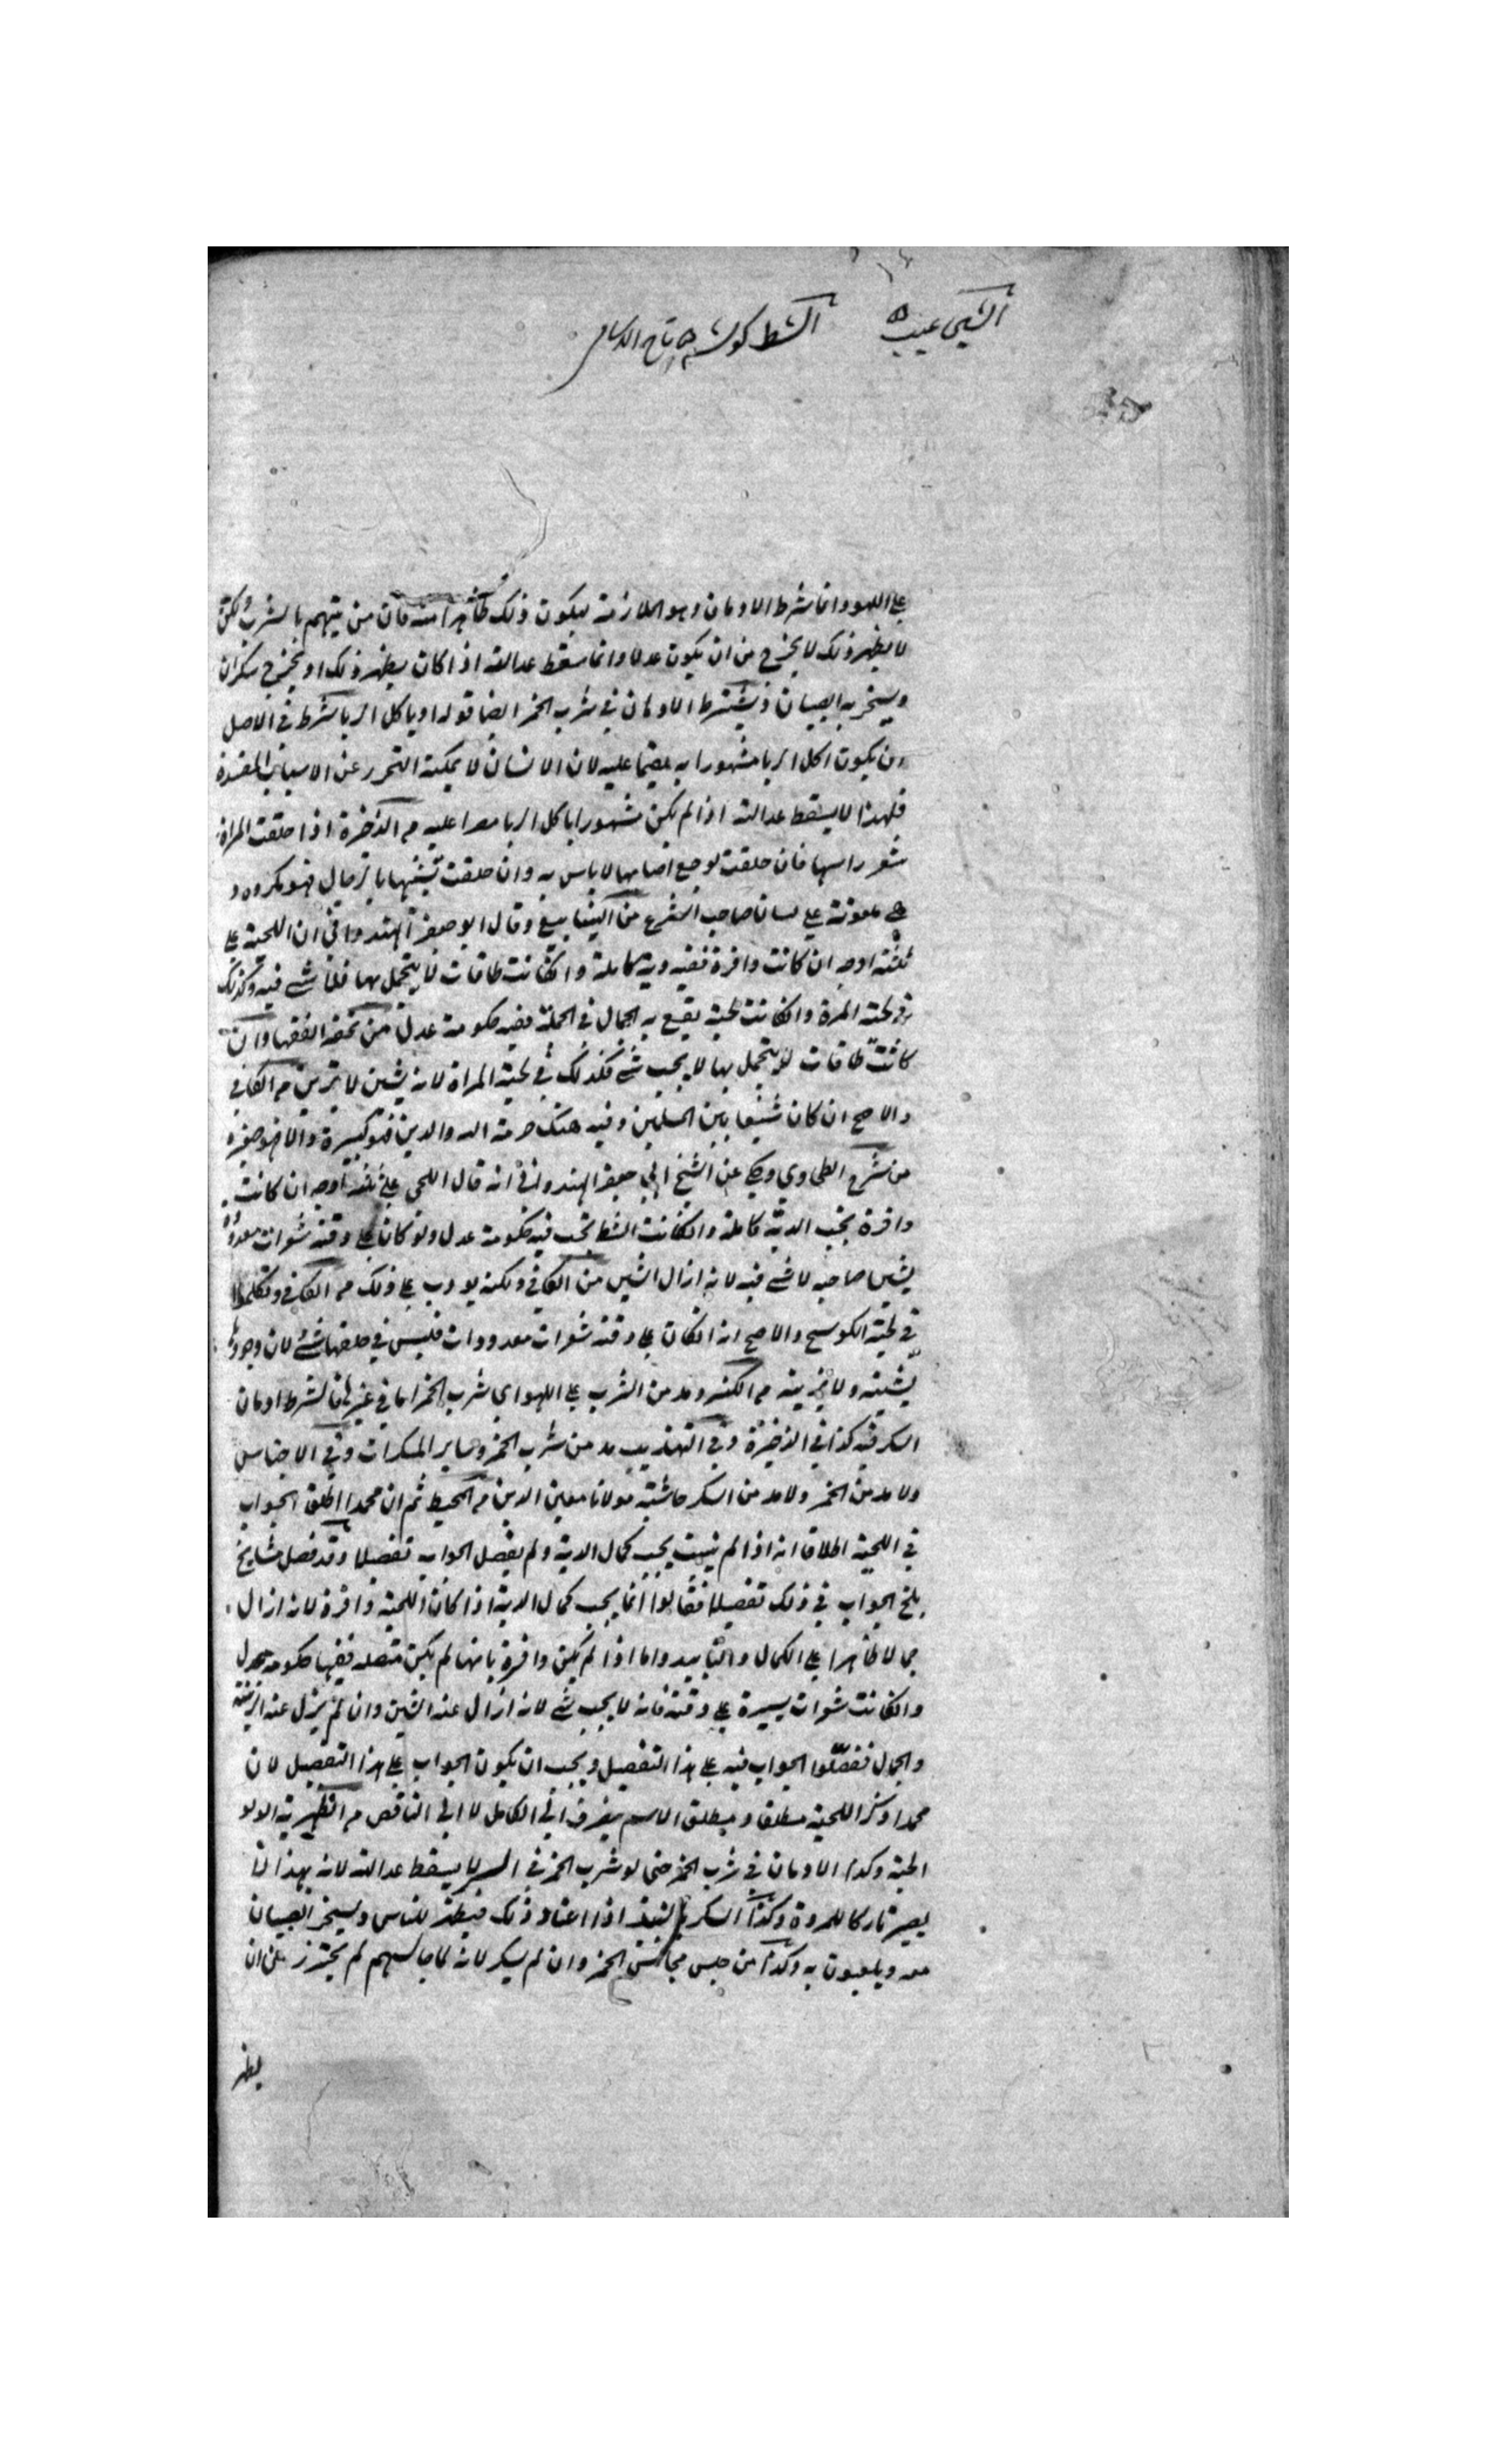 الشين عيب
الشط كوسه تاج الاسامى
على اللهو وانما شرط الادمان وهو الملازمة ليكون ذلك ظاهرا منه فان من يتهم بالشرب ولكن
لا يظهر ذلك لا يخرج من ان يكون عدلا وانما سقط عدالته اذا كان يظهر ذلك او يخرج سكران
ويسخر به الصبيان فيشترط الادمان في شرب الخمر ايضا قوله او ياكل الربا شرط في الاصل
ان يكون اكل الربا مشهورا به مقيما عليه لان الانسان لا يمكنه التحرز عن الاسباب المفسدة
فلهذا لا يسقط عدالته اذا لم يكن مشهورا باكل الربا مصرا عليه م الذخيرة اذا حلقت المراة
شعر راسها فان حلقت لوجع اصابها لا باس به وان حلقت تشبها بالرجال فهو مكروه و
هي ملعونة على لسان صاحب الشرع من الينابيع وقال ابو جعفر الهندواني ان اللحية على
ثلثة اوجه ان كانت وافرة ففيه دية كاملة وانكانت طاقات لا يتجمل بها فلا شي فيه وكذلك
في لحية المرة وانكانت لحية يقع به الجمال في الجملة ففيه حكومة عدل من تحفة الفقها وان
كانت طاقات لا يتجمل بها لا يجب شي فكذلك في لحية المراة لانه يشين لا يزين م الكافي
والاصح ان كان شنيعا بين المسلمين وفيه هتك حرمة الله والدين فهو كبيرة والا فهو صغيرة
من شرح الطحاوي وحكي عن الشيخ ابي جعفر الهندواني انه قال اللحى على ثلثة اوجه ان كانت
وافرة يجب الدية كاملة وانكانت الشط تجب فيه حكومة عدل ولو كانا على دقنه شعرات معدودة
يشين صاحبه لا شي فيه لانه ازال الشين من الكافي ولكنه يودب على ذلك م الكافي وتكلموا
في لحية الكوسج والاصح انه انكان على دقنه شعرات معدودات فليس في حلقها شي لان وجودها
يشينه ولا يزينه م الكنز ومدمن الشرب على اللهو اي شرب الخمر اما في غيرها فالشرط ادمان
السكر فيه كذا في الذخيرة وفي التهذيب مدمن شرب الخمر وساير المسكرات وفي الاجناس
ولا مدمن الخمر ولا مدمن السكر حاشية مولانا معين الدين م المحيط ثم ان محمدا اطلق الجواب
في اللحية اطلاقا انه اذا لم ينبت يجب كمال الدية ولم يفصل الجواب تفصيلا وقد فصل مشايخ
بلخ الجواب في ذلك تفصيلا فقالوا انما يجب كمال الدية اذا كان اللحية وافرة لانه ازال
جمالا ظاهرا على الكمال والتابيد واما اذا لم يكن وافرة بانها لم يكن متصله ففيها حكومه عدل
وانكانت شعرات يسيرة على دقنه فانه لا يجب شي لانه ازال عنه الشين وان لم يزل عنه الزينة
والجمال ففصلوا الجواب فيه على هذا التفصيل ويجب ان يكون الجواب على هذا التفصيل لان
محمدا ذكر اللحية مطلقا ومطلق الاسم ينصرف الى الكامل لا الى الناقص م الظهيرية
وكذا الادمان في شرب الخمر حتى لو شرب الخمر في السر لا يسقط عدالته لانه بهذا لا
يصير تاركا للمروة وكذا السكر بالنبيذ اذا اعتاد ذلك فيظهر للناس ويسخر الصبيان
معه ويلعبون به وكذا من جلس مجالس الخمر وان لم يسكر لانه لما جالسهم لم يحترز من ان
يظهر